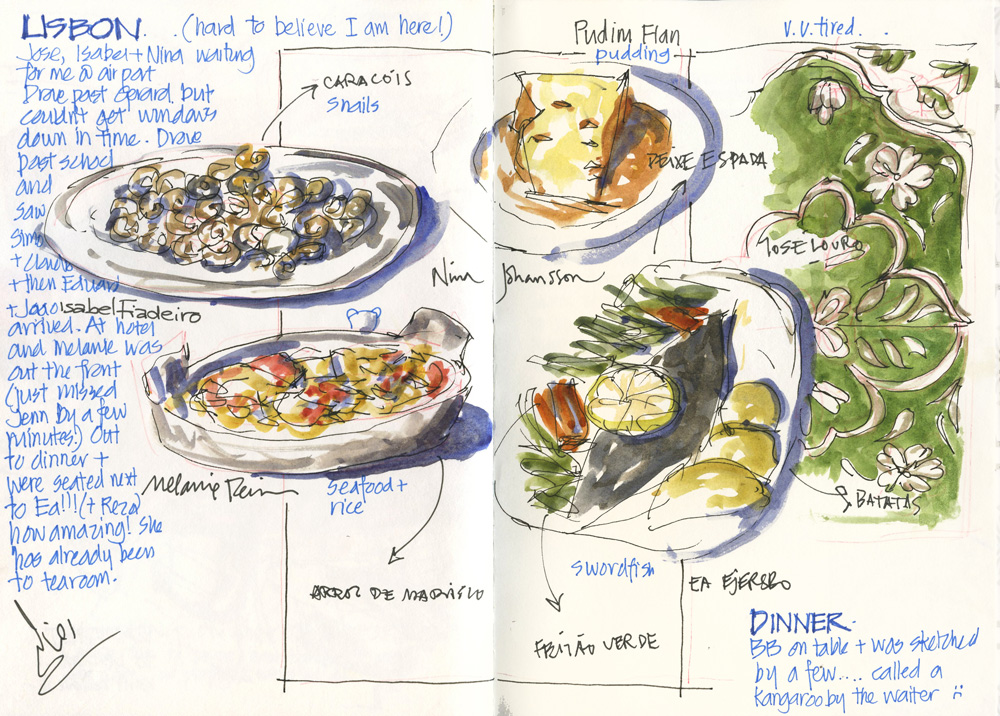 LISBON. . . (hard to believe I am here!)
Jose, Isabel + Nina waiting
for me @ airport
Drove past Gerard, but
couldn't get windows
down in time. Drove
past school
and
saw
Simo
+ Claudia
+ then Eduard
+ João
arrived. At hotel
and Melanie was
out the front
(just missed
Jenn by a few
minutes!) Out
to dinner +
were seated next
to Ea!!! (+ Reza)
how amazing! She
has already been
to tearoom.
CARACÓIS
Snails
Isabel Fiadeiro
Melanie Reim
Seafood +
rice
ARROZ DE MARISCO
Pudim Flan
pudding
V.V. tired. . .
PEIXE ESPADA
Nina Johansson
JOSE LOURO
& BATATAS
swordfish
FEIJÃO VERDE
EA EJERSBO
DINNER.
BB on table + was sketched
by a few.... called a
kangaroo by the waiter